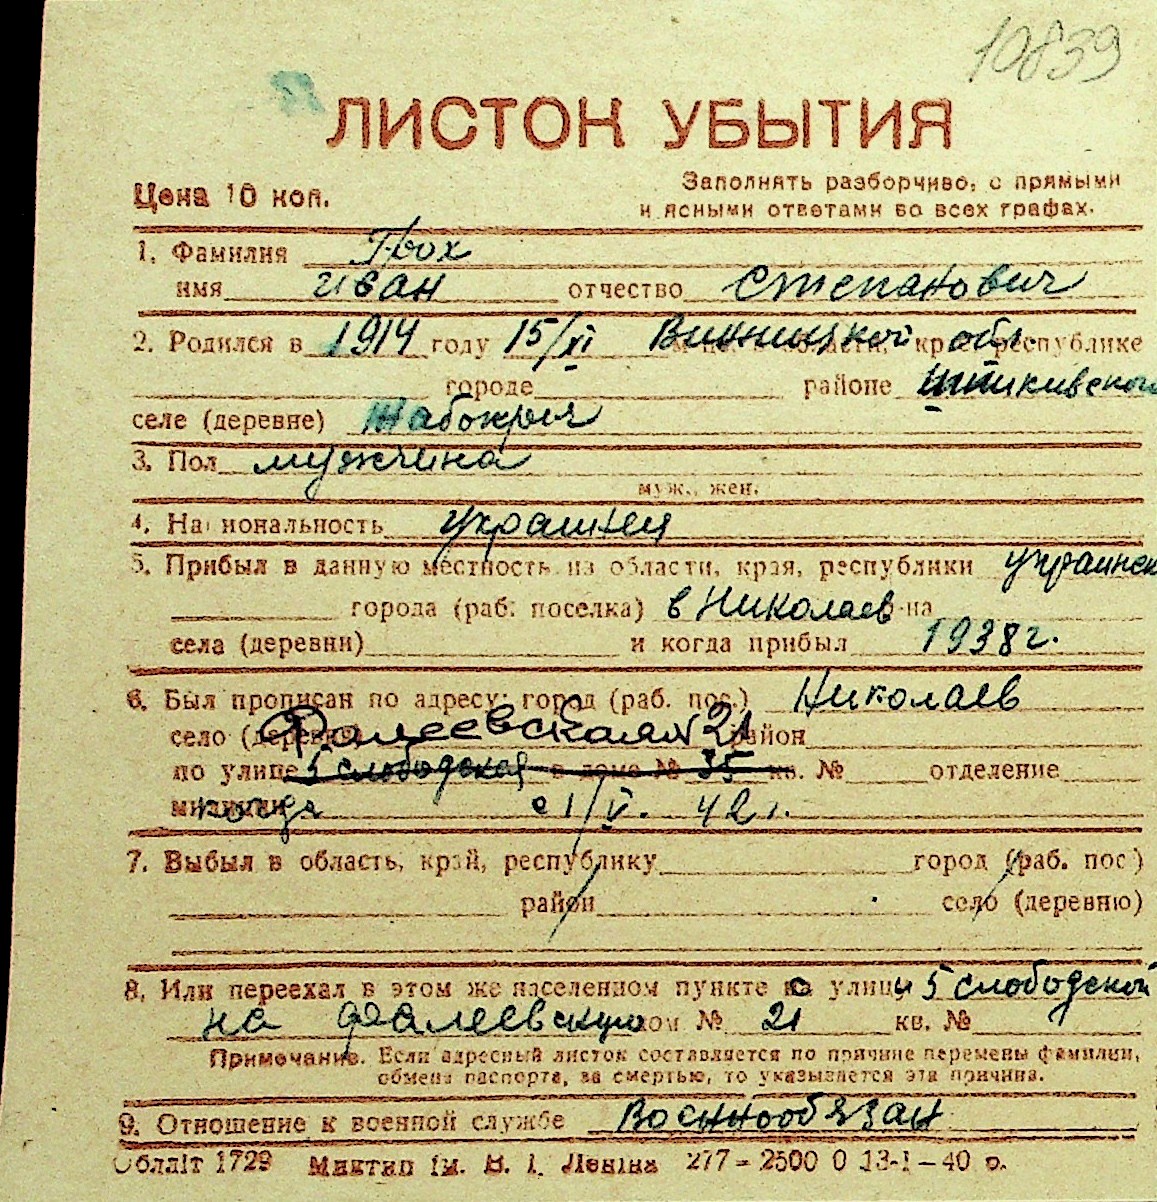 10839
ЛИСТОК УБЫТИЯ
Цена 10 коп.
Заполнять разборчиво, с прямыми
и ясными ответами во всех графах.
1. Фамилия
имя Иван отчество Степанович
2. Родился в 1914 году 15/VI Винницкой обл. крае, республике
городе районе
селе (деревне)
3. Пол мужчина
муж., жен.
4. Национальность украинец
5. Прибыл в данную местность из области, края, республики украинск
города (раб. поселка) в Николаев р-на
села (деревни) и когда прибыл 1938 г.
6. Был прописан по адресу: город (раб. пос.) Николаев
село (деревня) Фалеевская № 21 район
по улице 5 слободская в доме № 35 кв. № отделение
милиции когда с 1/V. 42 г.
7. Выбыл в область, край, республику город (раб. пос.)
район село (деревню)
8. Или переехал в этом же населенном пункте с улицы 5 слободской
на Фалеевскую дом № 21 кв. №
Примечание. Если адресный листок составляется по причине перемены фамилии,
обмена паспорта, за смертью, то указывается эта причина.
9. Отношение к военной службе Военнообязан
Обллiт 1729 Миктип iм. В. I. Ленiна 277 – 2500 0 13-I – 40 р.